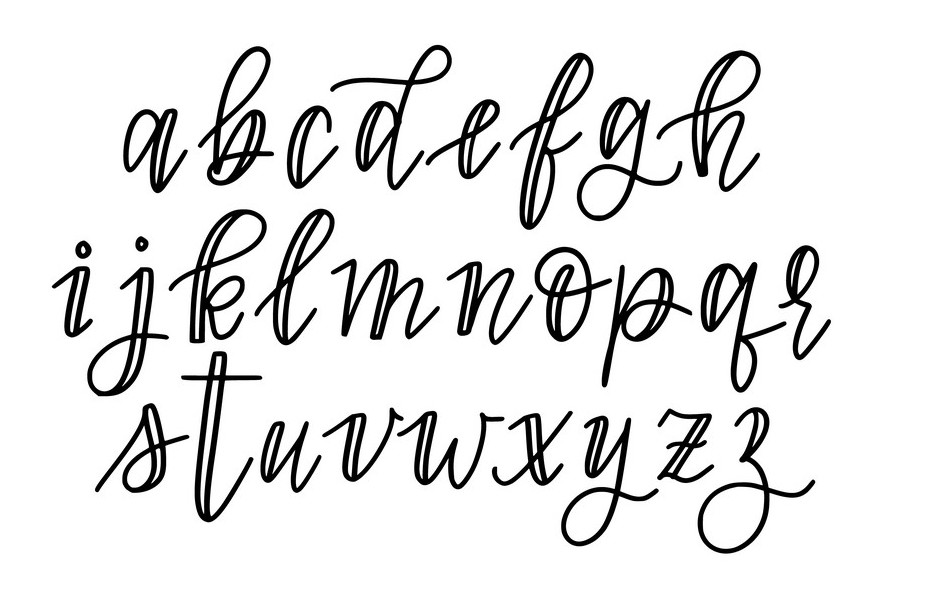 abcdefgh
ijklmnopqr
stuvwxyzz